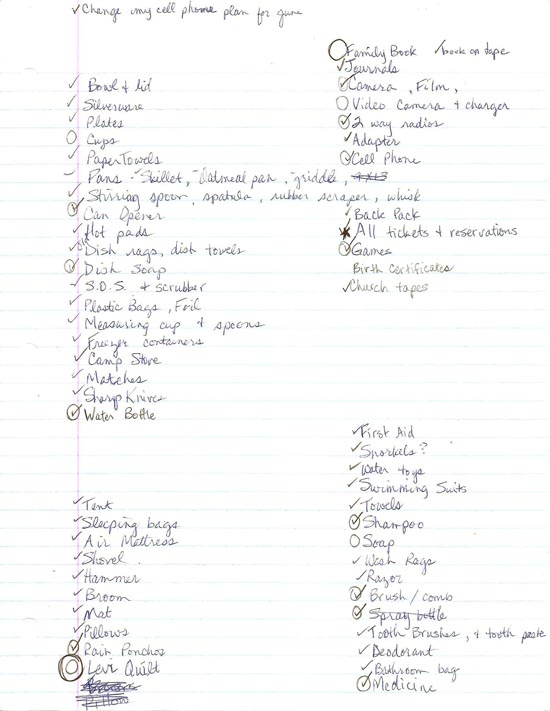 Change my cell phone plan for June
Bowl & lid
Silverware
Plates
Cups
Paper Towels
Pans - Skillet, Oatmeal pan, griddle, 9x13
Stirring spoon, spatula, rubber scraper, whisk
Can Opener
Hot pads
Dish rags, dish towels
Dish Soap
S.O.S. & scrubber
Plastic Bags, Foil
Measuring cup & spoons
Freezer containers
Camp Stove
Matches
Sharp Knives
Water Bottle
Tent
Sleeping bags
Air Mattress
Shovel
Hammer
Broom
Mat
Pillows
Rain Ponchos
Levi Quilt
Pillow
Family Book book on tape
Journals
Camera, Film,
Video Camera + charger
2 way radios
Adapter
Cell Phone
Back Pack
All tickets & reservations
Games
Birth Certificates
Church tapes
First Aid
Snorkels?
Water toys
Swimming Suits
Towels
Shampoo
Soap
Wash Rags
Razor
Brush / comb
Spray bottle
Tooth Brushes, & tooth paste
Deodorant
Bathroom bag
Medicine